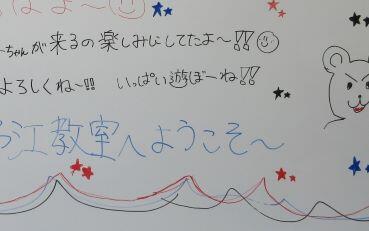 はよ〜
ちゃんが来るの楽しみにしてたよ〜!!
よろしくね〜!! いっぱい遊ぼーね!!
江教室へようこそ〜